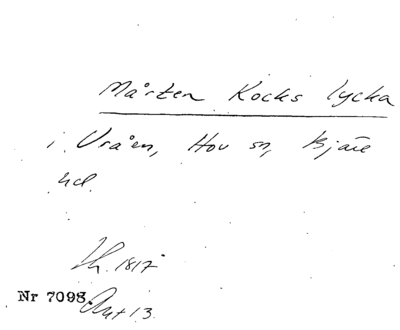 Mårten Kocks lycka
i Vråen, Hov sn, Bjäre
hd.
Lh. 1817
Nr 7098. Avt 13.